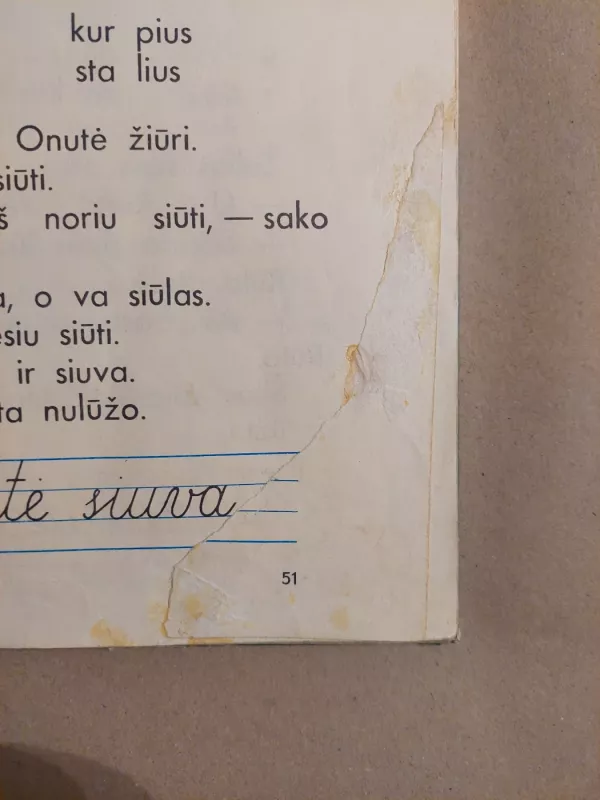 kur pius
sta lius
Onutė žiūri.
siūti.
š noriu siūti, — sako
a, o va siūlas.
ėsiu siūti.
ir siuva.
ta nulūžo.
tė siuva
51